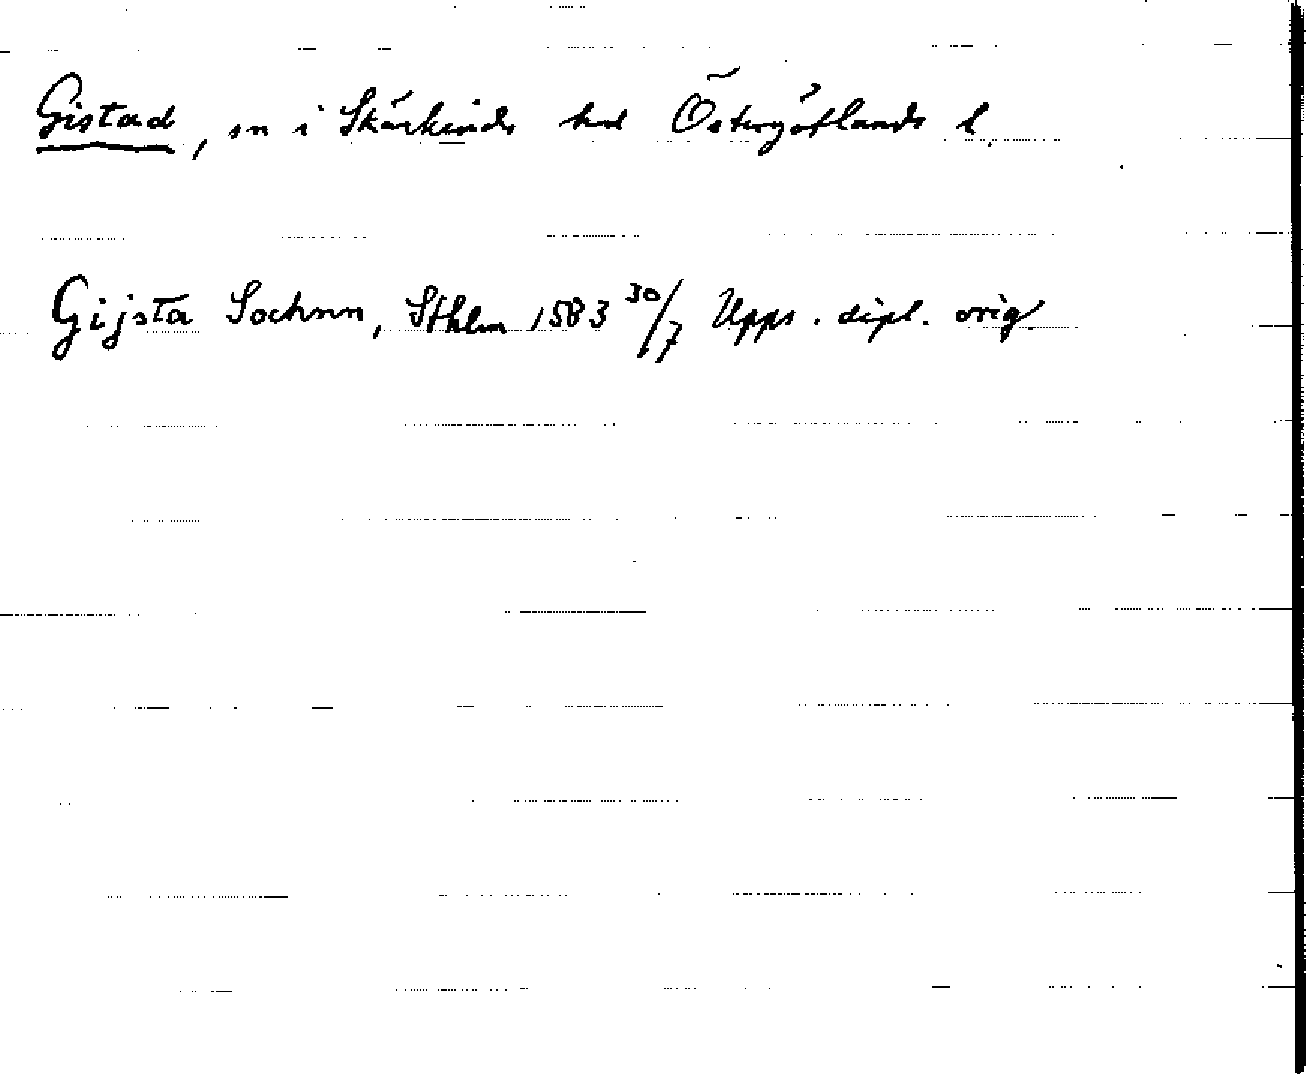 Gistad, sn i Skärkinds hd Östergötlands l.
Gijsta Sochnn, Sthlm 1583 30/7 Upps. dipl. orig.